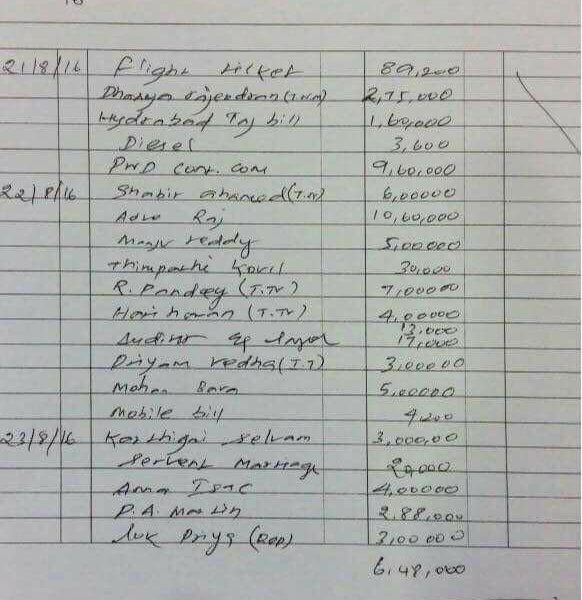 21/8/16 Flight ticket 89,200
Dhanya Rajendran (T.N.M) 2,75,000
Hyderabad Taj bill 1,60,000
Diesel 3,600
PWD cont. com 9,60,000
22/8/16 Shabir ahamed (T.N) 6,00000
Advo Raj 10,60,000
reddy 5,00000
Thirupathi Kovil 30,000
R. Pandey (T.TV) 7,00000
Hari haran (T.TV) 4,00000
13,000
Auditor 17,000
Priyam redha (T.T) 3,00000
Mohan 5,00000
Mobile bill 4,200
23/8/16 Karthigai Selvam 3,000,00
Servent Marriage 20,000
Anna Isac 4,00000
P.A. Martin 2,88,000
Priya 3,00000
6,48,000